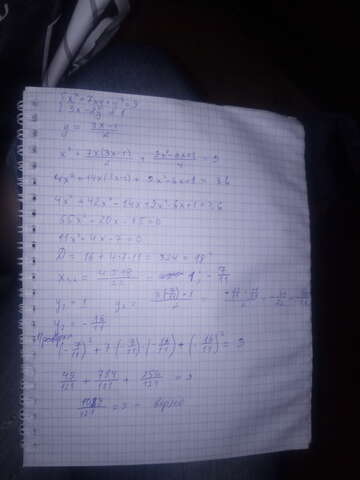 x² + 7xy + y² = 9
3x - 2y = 1
y = (3x-1)/2
x² + 7x(3x-1)/2 + (9x²-6x+1)/4 = 9
4x² + 14x(3x-1) + 9x² - 6x + 1 = 36
4x² + 42x² - 14x + 9x² - 6x + 1 = 36
55x² - 20x - 35 = 0
11x² - 4x - 7 = 0
D = 16 + 4·7·11 = 324 = 18²
x₁,₂ = (4±18)/22 = 1; -7/11
y₁ = 1 y₂ =
y₂ = -16/11
Проверка
(-7/11)² + 7·(-7/11)·(-16/11) + (-16/11)² = 9
49/121 + 784/121 + 256/121 = 9
1089/121 = 9 - верно